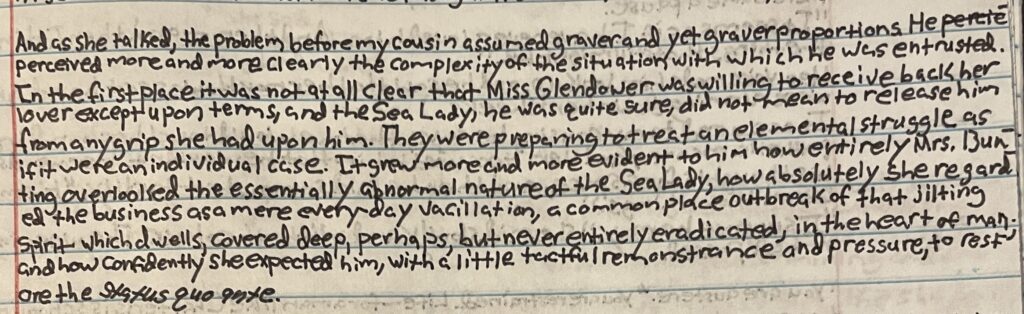 And as she talked, the problem before my cousin assumed graver and yet graver proportions. He percie
perceived more and more clearly the complexity of the situation with which he was entrusted.
In the first place it was not at all clear that Miss Glendower was willing to receive back her
lover except upon terms, and the Sea Lady, he was quite sure, did not mean to release him
from any grip she had upon him. They were preparing to treat an elemental struggle as
if it were an individual case. It grew more and more evident to him how entirely Mrs. Bun-
ting overlooked the essentially abnormal nature of the Sea Lady, how absolutely she regard-
ed the business as a mere every-day vacillation, a commonplace outbreak of that jilting
spirit which dwells, covered deep, perhaps, but never entirely eradicated, in the heart of man;
and how confidently she expected him, with a little tactful remonstrance and pressure, to rest-
ore the status quo ante.